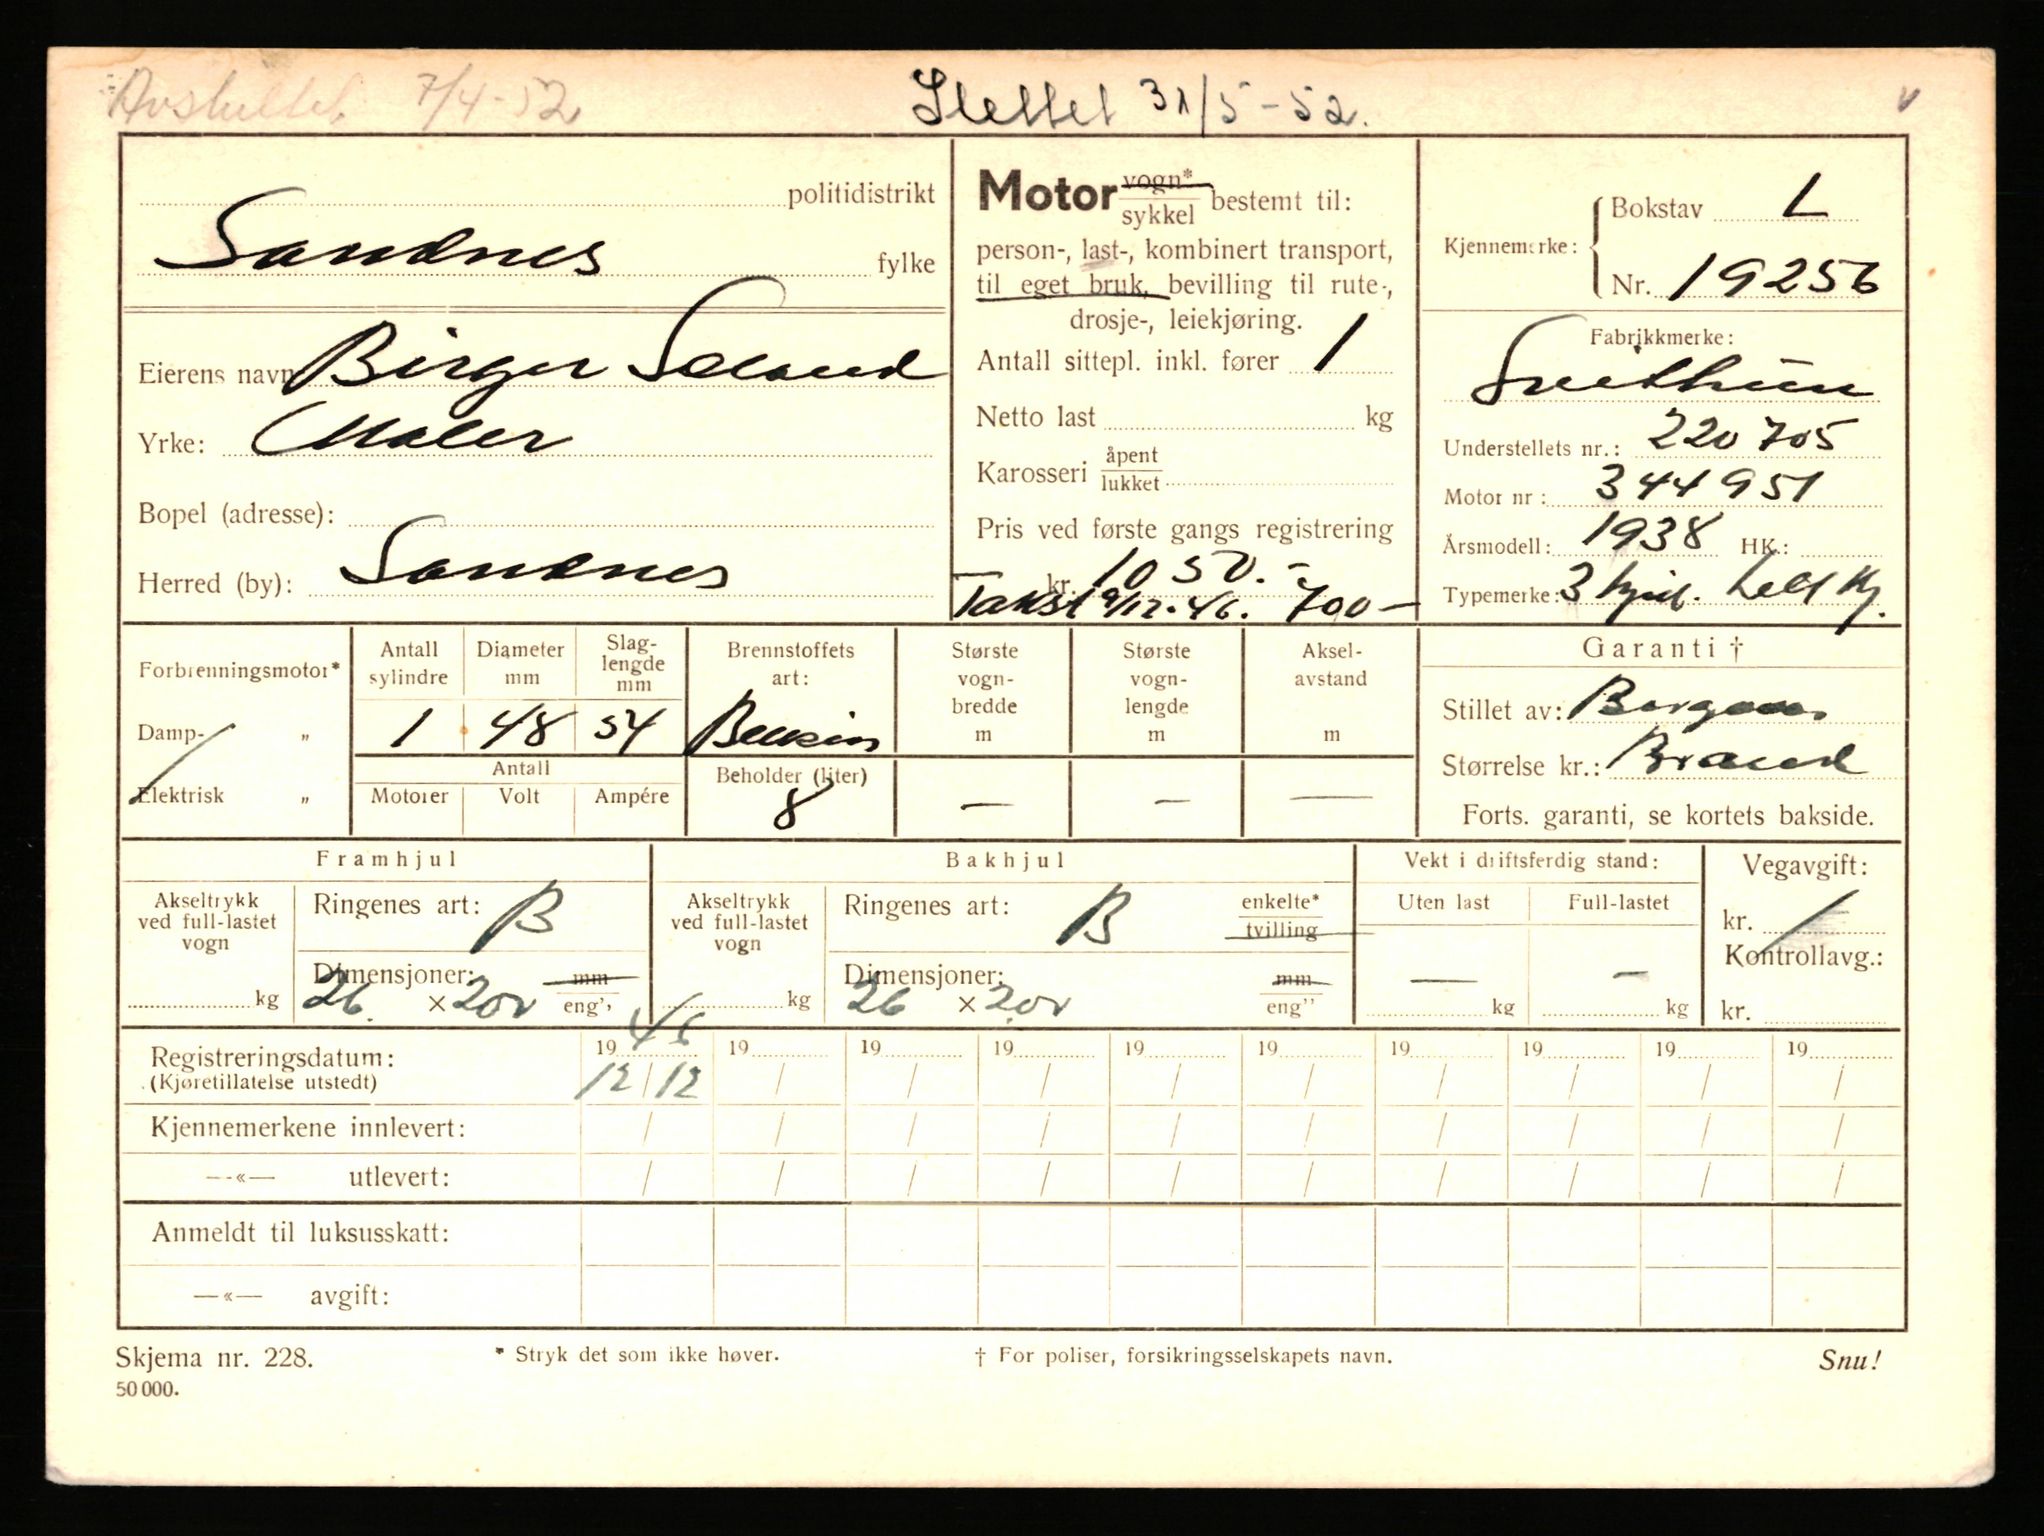 Avskiltet 7/4-52 Slettet 31/5-52. v
politidistrikt
Sandnes fylke
Eierens navn Birger Seland
Yrke: Maler
Bopel (adresse):
Herred (by): Sandnes
Motor vogn* bestemt til:
sykkel
person-, last-, kombinert transport,
til eget bruk, bevilling til rute-,
drosje-, leiekjøring.
Antall sittepl. inkl. fører 1
Netto last kg
Karosseri åpent
lukket
Pris ved første gangs registrering
kr. 1050.-
Takst 9/12-46. 700-
Kjennemerke: Bokstav L
Nr. 19256
Fabrikkmerke:
Svithun
Understellets nr.: 220705
Motor nr: 344951
Årsmodell: 1938 HK.:
Typemerke: 3 hjul.
Forbrenningsmotor*
Damp- „
Elektrisk „
Antall sylindre Diameter mm Slag-lengde mm
1 48 54
Antall
Motorer Volt Ampére
Brennstoffets art:
Bensin
Beholder (liter)
8
Største vogn-bredde m
—
Største vogn-lengde m
—
Aksel-avstand m
—
Garanti †
Stillet av: Bergens
Størrelse kr.: Brand
Forts. garanti, se kortets bakside.
Framhjul
Akseltrykk ved full-lastet vogn
kg
Ringenes art: B
Dimensjoner: mm
26 × 200 eng''
Bakhjul
Akseltrykk ved full-lastet vogn
kg
Ringenes art: B enkelte*
tvilling
Dimensjoner: mm
26 × 200 eng''
Vekt i driftsferdig stand:
Uten last Full-lastet
— —
kg kg
Vegavgift:
kr.
Kontrollavg.:
kr.
Registreringsdatum: 19 46 19 19 19 19 19 19 19 19 19
(Kjøretillatelse utstedt) 12/12 / / / / / / / / /
Kjennemerkene innlevert: / / / / / / / / / /
—«— utlevert: / / / / / / / / / /
Anmeldt til luksusskatt:
—«— avgift:
Skjema nr. 228. * Stryk det som ikke høver. † For poliser, forsikringsselskapets navn. Snu!
50 000.